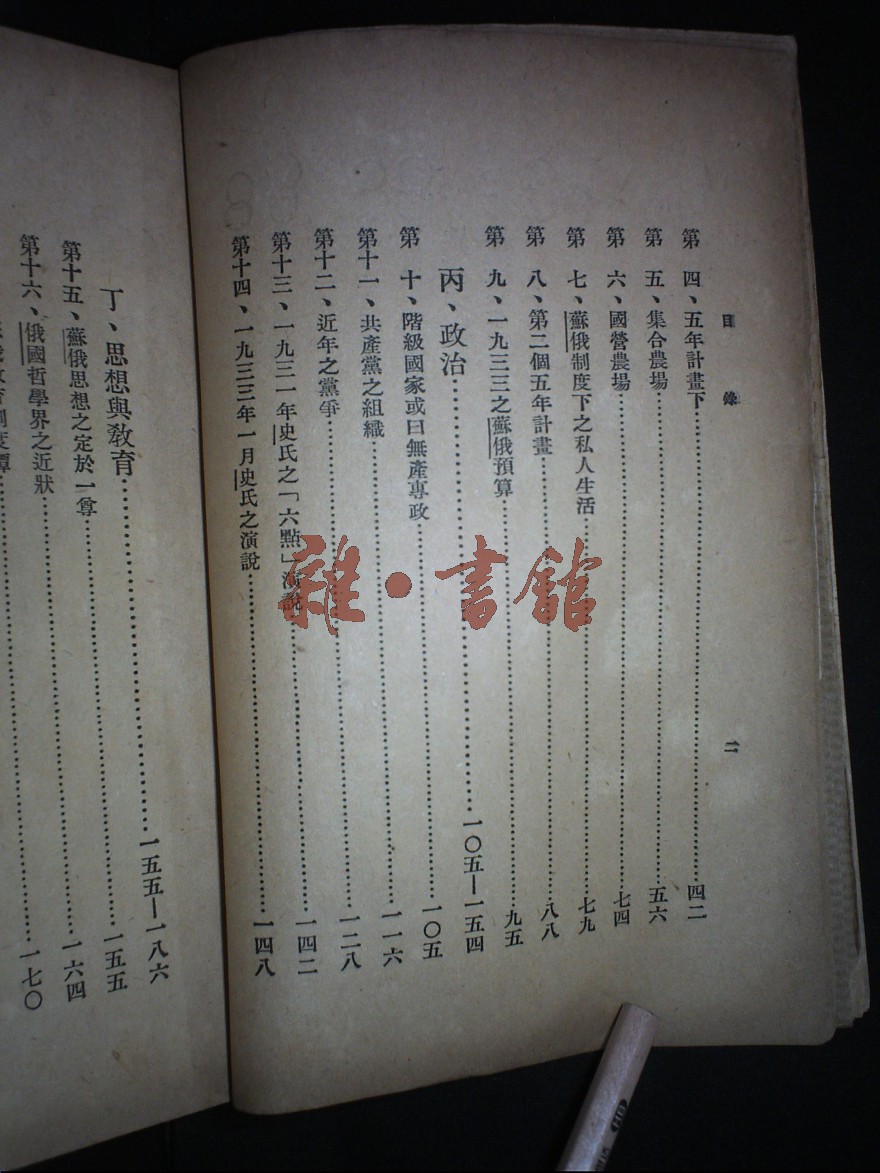 目錄 二
第四、五年計畫下……四二
第五、集合農場……五六
第六、國營農場……七四
第七、蘇俄制度下之私人生活……七九
第八、第二個五年計畫……八八
第九、一九三三之蘇俄預算……九五
丙、政治……一〇五—一五四
第十、階級國家或曰無產專政……一〇五
第十一、共產黨之組織……一一六
第十二、近年之黨爭……一二八
第十三、一九三一年史氏之「六點」演說……一四二
第十四、一九三三年一月史氏之演說……一四八
丁、思想與教育……一五五—一八六
第十五、蘇俄思想之定於一尊……一五五
第十六、俄國哲學界之近狀……一六四
制度譚……一七〇
雜·書館